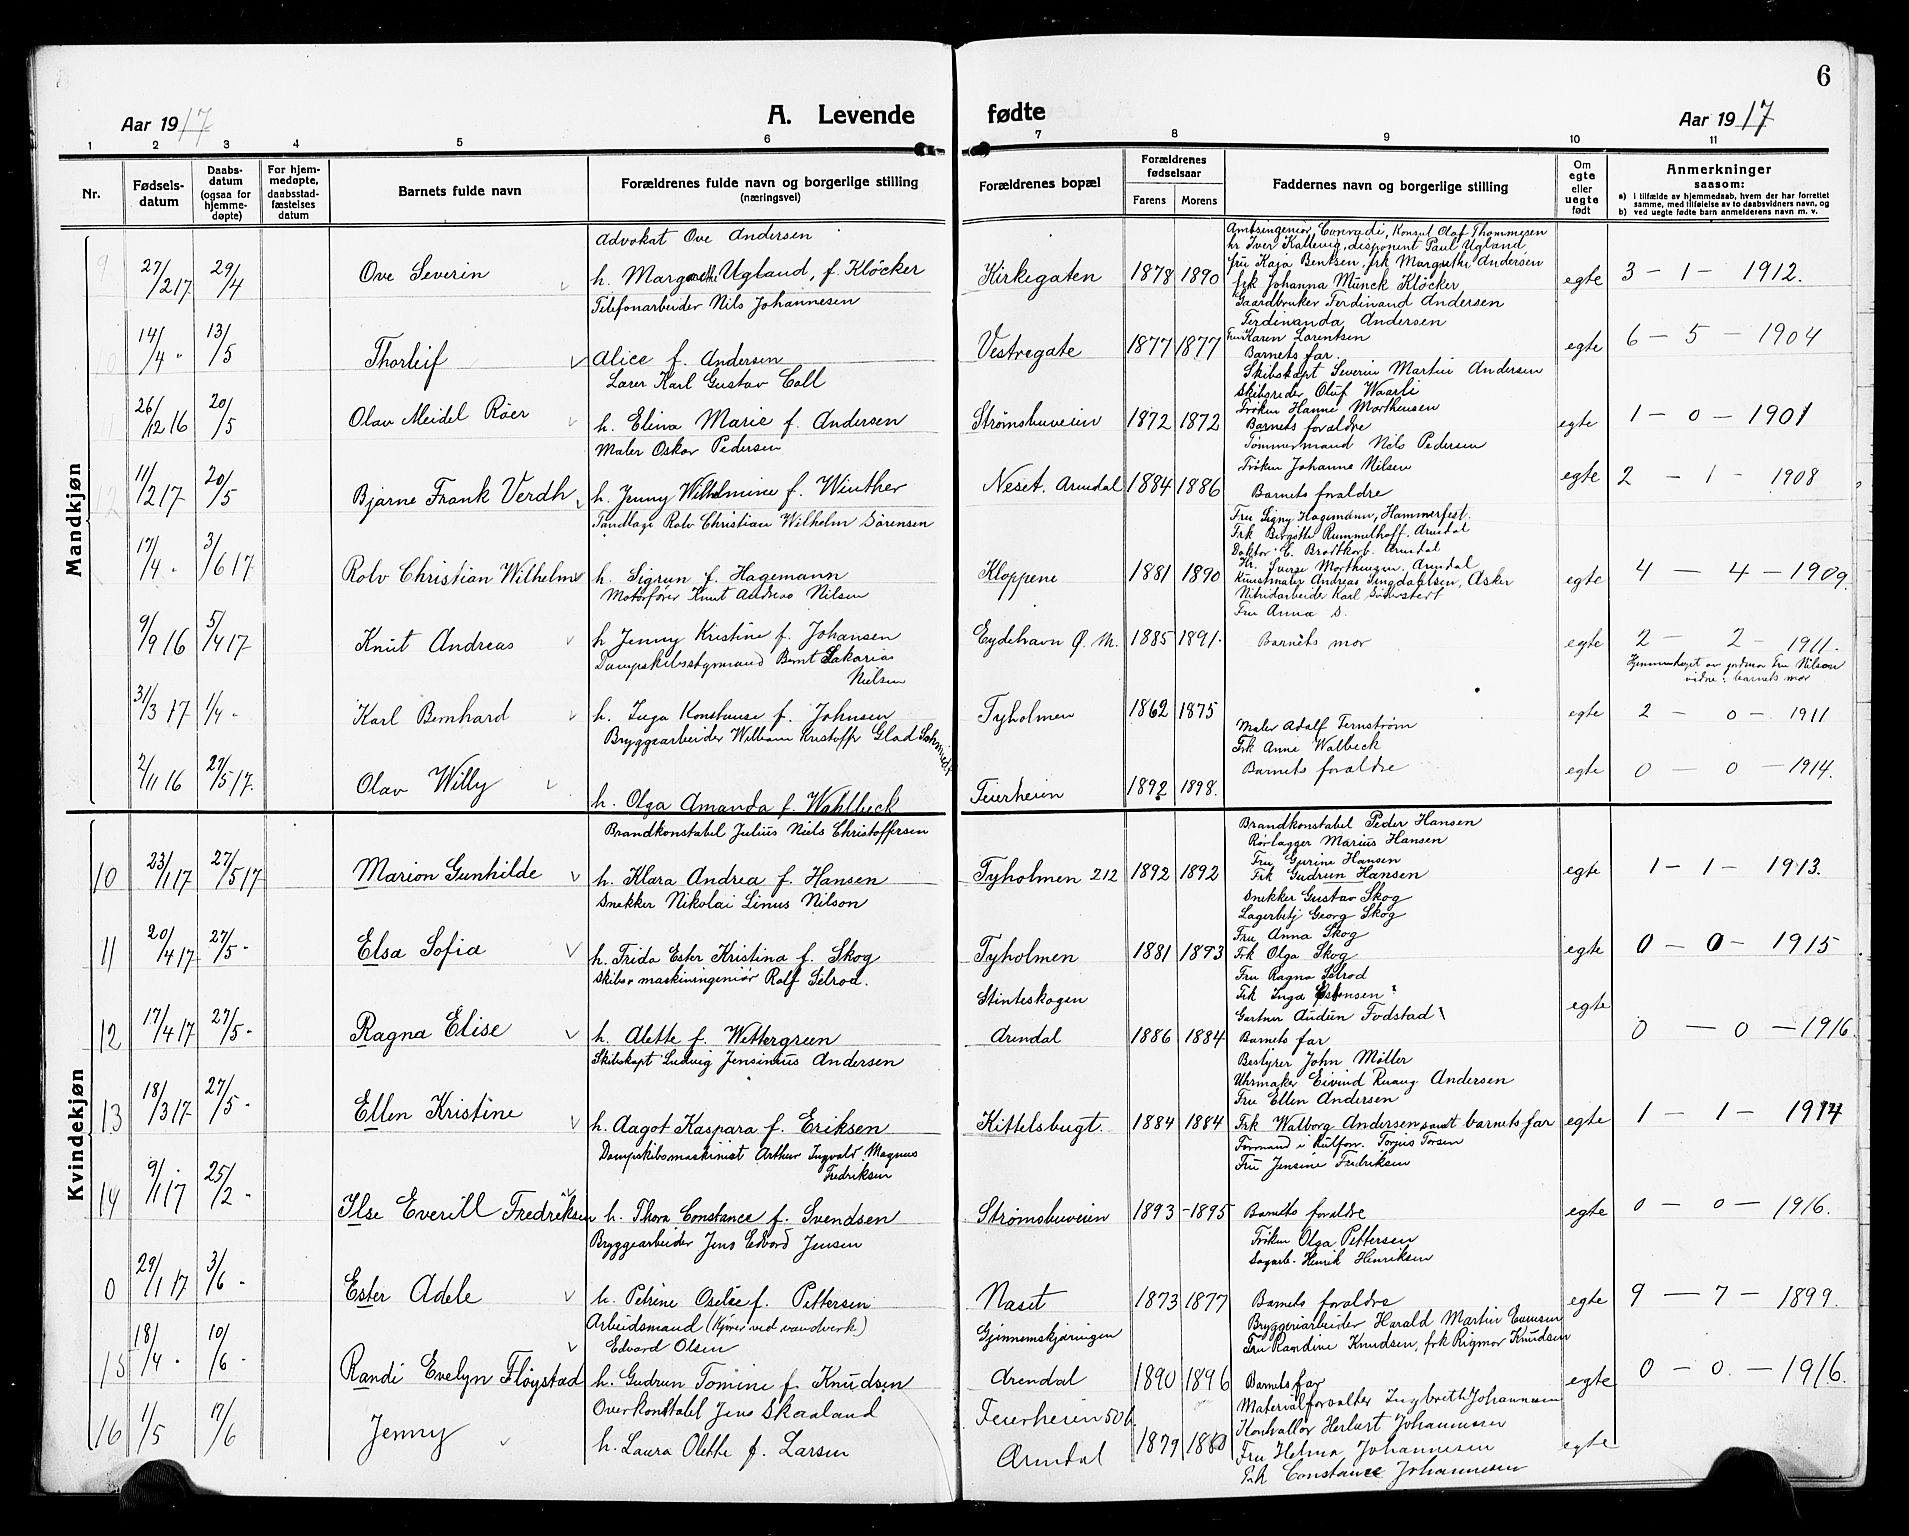 6
Aar 1917 A. Levende fødte Aar 1917
1 2 3 4 5 6 7 8 9 10 11
Nr.
Fødsels-
datum
Daabs-
datum
(ogsaa for
hjemme-
døpte)
For hjem-
medøpte,
daabsstad-
fæstelses
datum
Barnets fulde navn
Forældrenes fulde navn og borgerlige stilling
(næringsvei)
Forældrenes bopæl
Forældrenes
fødselsaar
Farens Morens
Faddernes navn og borgerlige stilling
Om
egte
eller
uegte
født
Anmerkninger
saasom:
a) i tilfælde av hjemmedaab, hvem der har forrettet
samme, med tilføielse av to daabsvidners navn, og
b) ved uegte fødte barn anmelderens navn m. v.
Mandkjøn
9 27/2 17 29/4 Ove Severin
Advokat Ove Andersen
h. Margrethe Ugland, f. Kløcker
Kirkegaten 1878 1890
Amtsingeniør Conradi, Konsul Olaf Thommesen
hr Iver Kallevig, disponent Paul Ugland
fru Kaja Bentsen, frk Margrethe Andersen
frk Johanna Münck Kløcker
egte 3 - 1 - 1912.
10 14/4 " 13/5 Thorleif
Telefonarbeider Nils Johannesen
Alice f. Andersen
Vestregate 1877 1877
Gaardbruker Ferdinand Andersen
Ferdinanda Andersen
Fru Karen Lorentsen
Barnets far.
egte 6 - 5 - 1904
11 26/12 16 20/5 Olav Meidel Røer
Lærer Karl Gustav Coll
h. Elina Marie f. Andersen
Strømsbuveien 1872 1872
Skibskapt Severin Martin Andersen
Skibsreder Oluf Waarli
Frøken Hanne Morthensen
Barnets forældre
egte 1 - 0 - 1901
12 11/2 17 20/5 Bjarne Frank Verdh
Maler Oskar Pedersen
h. Jenny Wilhelmine f. Winther
Neset. Arendal 1884 1886
Tømmermand Nils Pedersen
Frøken Johanne Nilsen
Barnets forældre
egte 2 - 1 - 1908
17/4 " 3/6 17 Rolv Christian Wilhelm
Tandlæge Rolv Christian Wilhelm Sørensen
h. Sigrun f. Hagemann
Kloppene 1881 1890
Fru Signy Hagemann, Hammerfest.
Frk Birgitte Rummelhoff. Arendal
Doktor E. Brodtkorb. Arendal
Hr. Sverse Morthensen. Arendal
Kunstmaler Andreas Singdahlsen, Asker
egte 4 - 4 - 1909.
9/9 16 5/4 17 Knut Andreas
Motorfører Knut Andreas Nilsen
h Jenny Kristine f. Johansen
Eydehavn Ø. M. 1885 1891.
Nitridarbeide Karl Söderstedt
Fru Anna S.
Barnets mor
egte 2 - 2 - 1911.
Hjemmedøpt av jordmor Fru Nilsen
vidne: barnets mor
31/3 17 1/4 - Karl Bernhard
Dampskibsstyrmand Bernt Zakarias
Nielsen
h. Inga Konstanse f. Johnsen
Tyholmen 1862 1875
egte 2 - 0 - 1911
2/11 16 27/5 17. Olav Willy
Bryggearbeider William Kristoffer Glad Schmidt
h. Olga Amanda f. Wahlbeck
Feierheien 1892 1898.
Maler Adolf Ternstrøm
Frk Anne Walbeck
Barnets forældre
egte 0 - 0 - 1914.
Kvindekjøn
10 23/1 17 27/5 17 Marion Gunhilde
Brandkonstabel Julius Niels Christoffersen
h. Klara Andrea f. Hansen
Tyholmen 212 1892 1892
Brandkonstabel Peder Hansen
Rørlægger Marius Hansen
Fru Gurine Hansen
Frk Gudrun Hansen
egte 1 - 1 - 1913.
11 20/4 17 27/5 - Elsa Sofia
Snekker Nikolai Linus Nilson
h. Frida Ester Kristina f. Skog
Tyholmen 1881 1893
Snekker Gustav Skog
Lagerbetj Georg Skog
Fru Anna Skog
Frk Olga Skog
egte 0 - 0 - 1915
12 17/4 17 27/5 - Ragna Elise
Skibs maskiningeniør Rolf Selrod.
h. Alette f. Wettergreen
Stinteskogen
Arendal 1886 1884
Fru Ragna Selrod
Frk Inga Østensen
Gartner Audun Fodstad
Barnets far
egte 0 - 0 - 1916.
13 18/3 17 27/5 - Ellen Kristine
Skibskapt Ludvig Jensinius Andersen
h. Aagot Kaspara f. Eriksen
Kittelsbugt. 1884 1884
Bestyrer John Møller
Uhrmaker Eivind Ruaug Andersen
Fru Ellen Andersen
Frk Walborg Andersen samt barnets far
egte 1 - 1 - 1914
14 9/1 17 25/2 - Ilse Everill Fredriksen
Dampskibsmaskinist Arthur Ingvald Magnus
Fredriksen
h. Thora Constance f. Svendsen
Strømsbuveien 1893 - 1895
Formand i Kulforr. Torjus Torsen
Fru Jensine Fredriksen
Barnets forældre
egte 0 - 0 - 1916.
0 29/1 17 3/6 - Ester Adele
Bryggearbeider Jens Edvard Jensen
h. Petrine Oselse f. Pettersen
Næset 1873 1877
Frøken Olga Pettersen
Sagarb. Henrik Henriksen
Barnets forældre
egte 9 - 7 - 1899.
15 18/4 " 10/6 - Randi Evelyn Fløystad
Arbeidsmand (Kjører ved vandverk)
Edvard Olsen
h. Gudrun Tomine f. Knudsen
Gjennemskjæringen
Arendal 1890 1896
Bryggeriarbeider Harald Martin Evensen
Fru Randine Knudsen, frk Rigmor Knudsen
Barnets far
egte 0 - 0 - 1916.
16 1/5 17/6 Jenny
Overkonstabel Jens Skaaland
h. Laura Olette f. Larsen
Feierheien 50 b.
Arendal 1879 1880
Materialforvalter Ingbreth Johannesen
Herbert Johannesen
Fru Helma Johannesen
Frk Constance Johannesen
egte